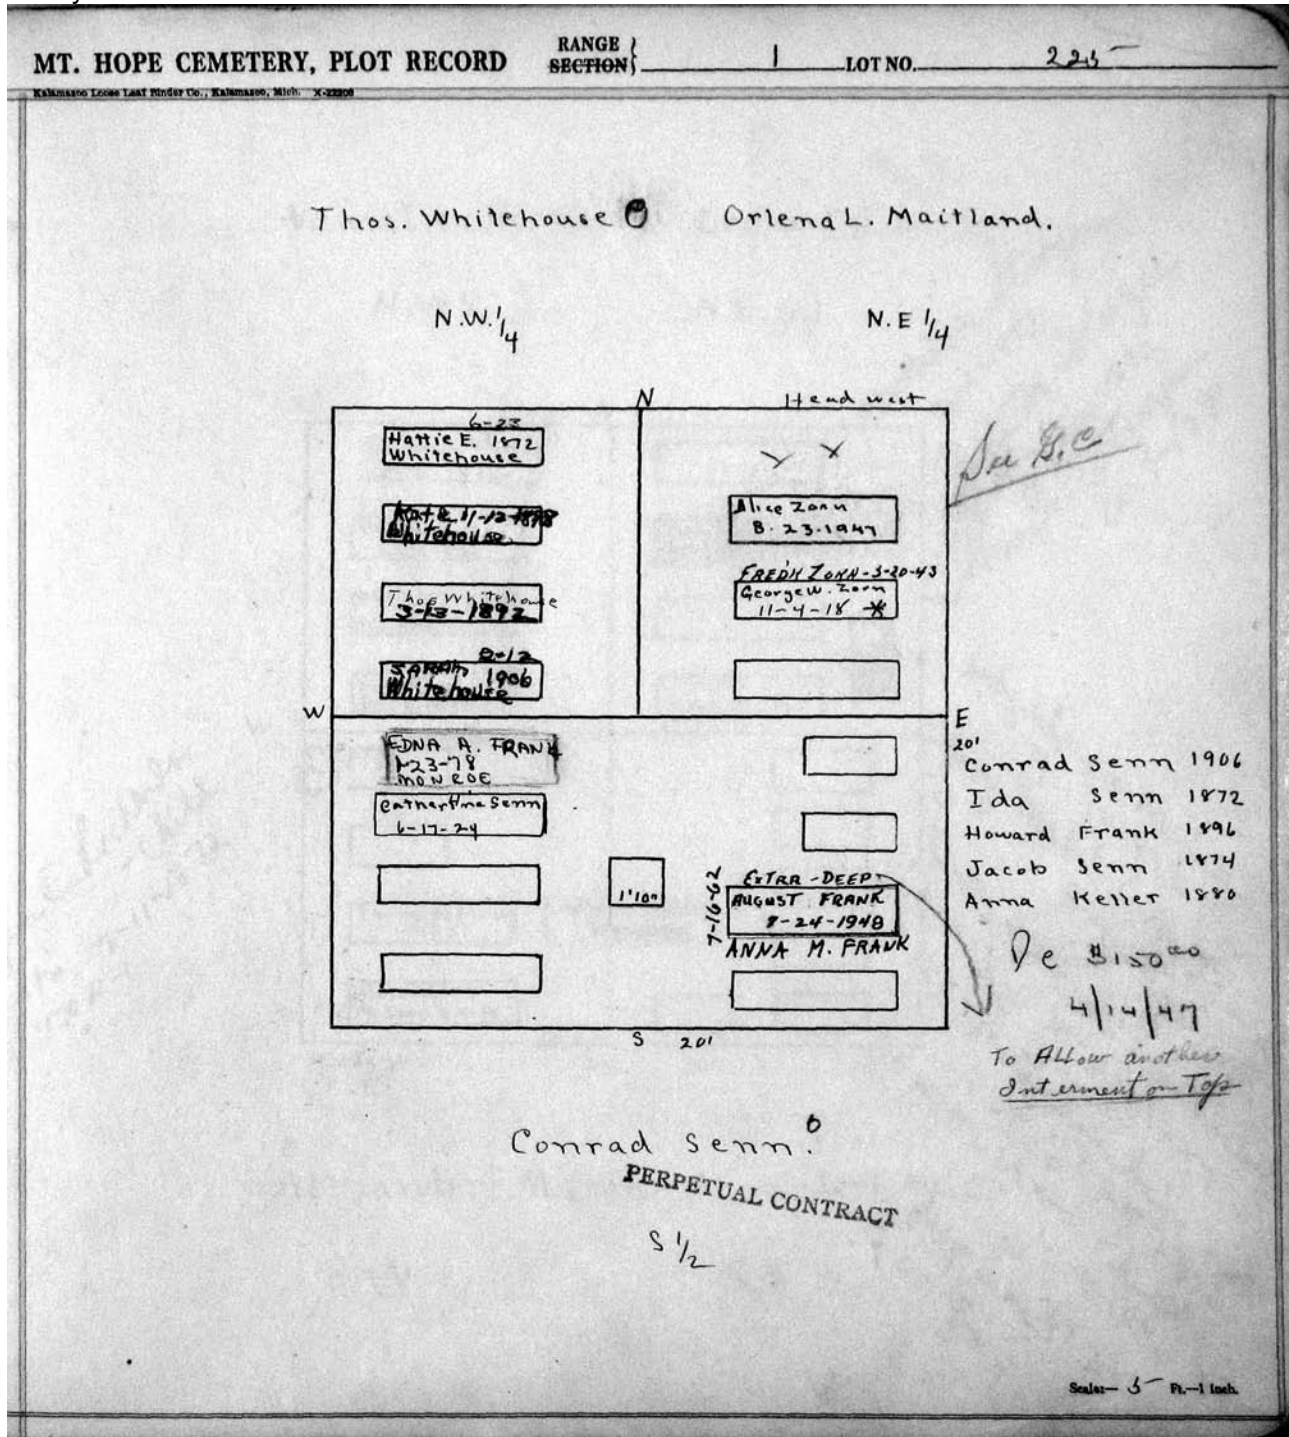 MT. HOPE CEMETERY, PLOT RECORD
RANGE
SECTION
1 LOT NO. 225
Kalamazoo Loose Leaf Binder Co., Kalamazoo, Mich. X-22206
Thos. Whitehouse O Orlena L. Maitland.
N.W. 1/4 N.E 1/4
N
Head west
6-23
Hattie E. 1872
Whitehouse
Katie 11-12-1898
Whitehouse
Thos Whitehouse
3-13-1892
2-12
SARAH 1906
Whitehouse
Alice Zorn
8-23-1947
FREDK ZORN-3-20-43
George W. Zorn
11-4-18
W
E
EDNA A. FRANK
1-23-78
MONROE
Catharine Senn
6-17-24
1'10"
7-16-62
EXTRA-DEEP
AUGUST FRANK
8-24-1948
ANNA M. FRANK
20'
Conrad Senn 1906
Ida Senn 1872
Howard Frank 1896
Jacob Senn 1874
Anna Keller 1880
$150.00
4/14/47
To Allow another
Interment on Top
S 20'
Conrad Senn. O
PERPETUAL CONTRACT
S 1/2
Scale:— 5 Ft.—1 Inch.